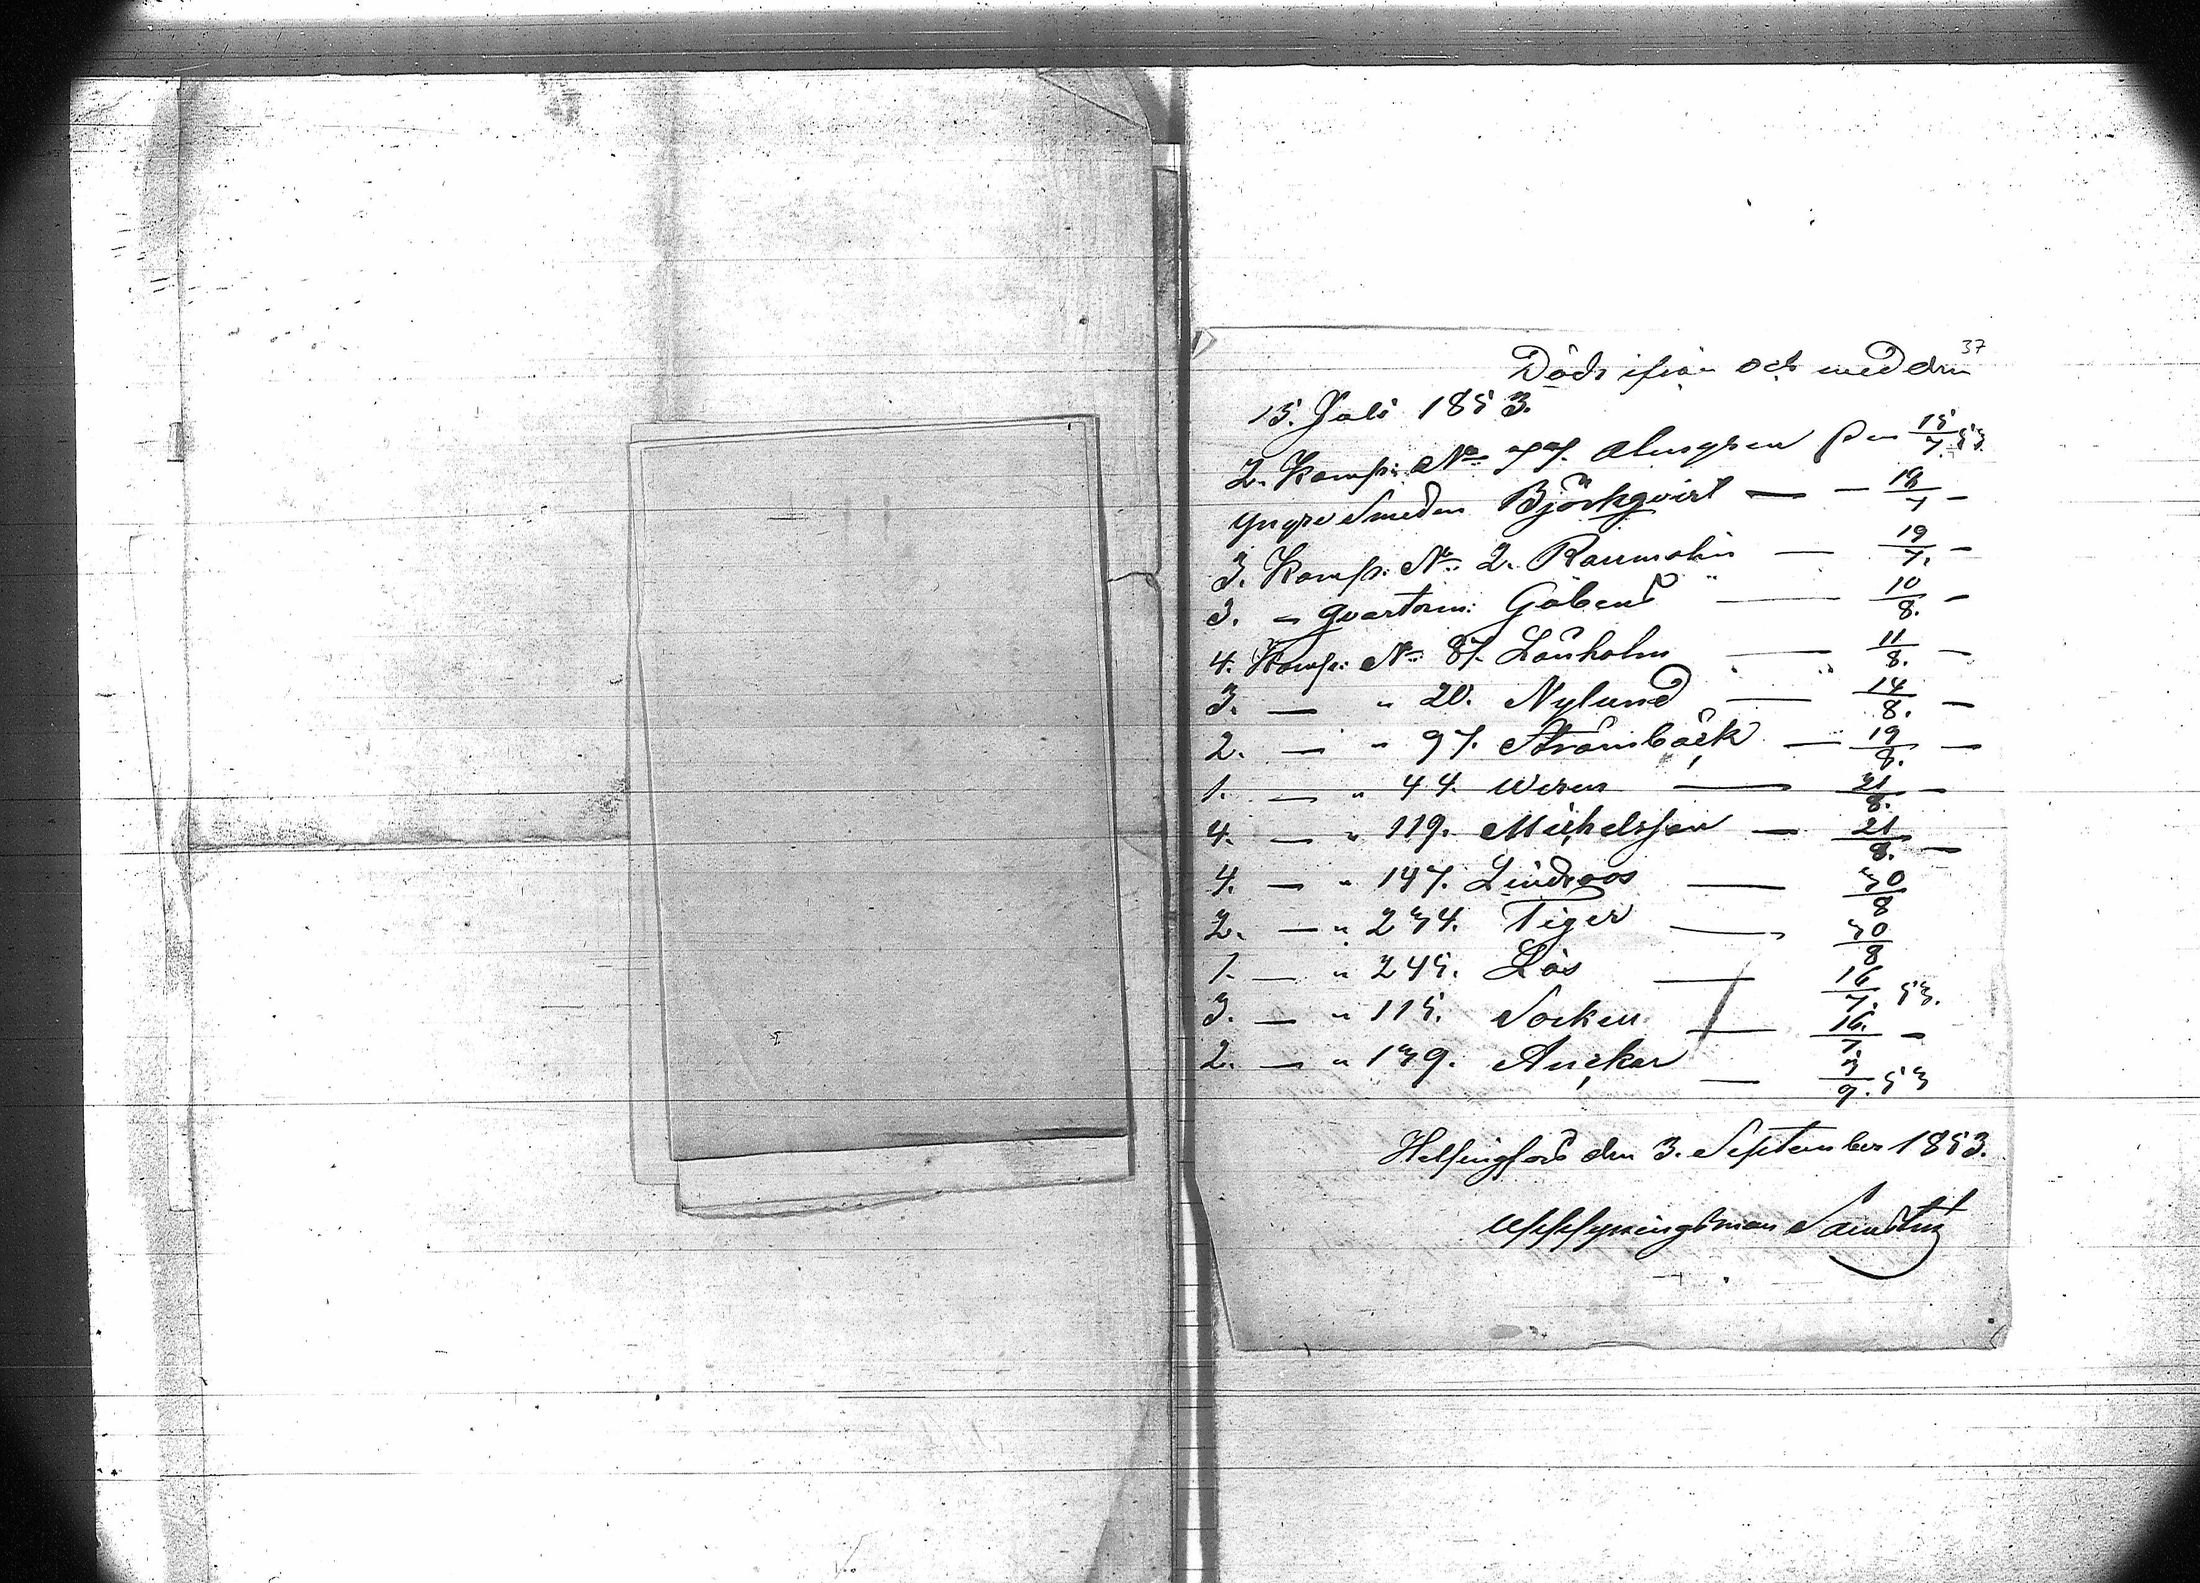 37
Döde ifrån och med den
15. Juli 1853.
2. Komp: No 77. Almgren den 15/7 53.
Yngre Smeden Björkqvist — — 18/7 —
3. Komp: No 2. Raumolin — 19/7. —
3. — Qvarterm: Göbend — 10/8. —
4. Komp: No 87. Lönholm — 11/8. —
3. — " 20. Nylund — 14/8. —
2. — " 97. Strömbäck — 19/8. —
1. — " 44. Wiren — 21/8. —
4. — " 119. Michelsson — 21/8. —
4. — " 147. Lindroos — 30/8
2. — " 234. Tiger — 30/8
1. — " 245. Lås — 16/7. 53.
3. — " 115. Socken — 16./7 —
2. — " 139. Anckar — 3/9. 53
Helsingfors den 3. September 1853.
Uppsyningsman